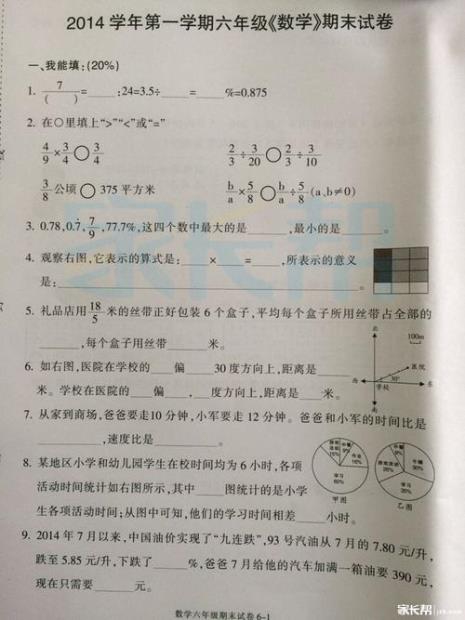 2014学年第一学期六年级《数学》期末试卷
一、我能填:(20%)
1. 7/( )=____:24=3.5÷____=____%=0.875
2. 在○里填上“>”“<”或“=”
4/9×3/4○3/4 2/3÷3/20○2/3÷3/10
3/8公顷○375平方米 b/a×5/8○b/a÷5/8(a、b≠0)
3. 0.78,0.7̇,7/9,77.7%,这四个数中最大的是____,最小的是____。
4. 观察右图,它表示的算式是:__×__=__,所表示的意义
是:____。
5. 礼品店用18/5米的丝带正好包装6个盒子,平均每个盒子所用丝带占全部的
____,每个盒子用丝带____米。
北
100m
医院
30°
西
学校
东
南
6. 如右图,医院在学校的__偏__30度方向上,距离是____
米。学校在医院的__偏__,__度方向上,距离是__米。
7. 从家到商场,爸爸要走10分钟,小军要走12分钟。爸爸和小军的时间比是
____,速度比是____。
8. 某地区小学和幼儿园学生在校时间均为6小时,各项
活动时间统计如右图所示,其中__图统计的是小学
生各项活动时间;从图中可知,他们的学习时间相差____小时。
学习
60%
甲图
学习
乙图
9. 2014年7月以来,中国油价实现了“九连跌”,93号汽油从7月的7.80元/升,
跌至5.85元/升,下跌了____%,爸爸7月给他的汽车加满一箱油要390元,
现在只需要____元。
数学六年级期末试卷6-1
家长帮
家长帮